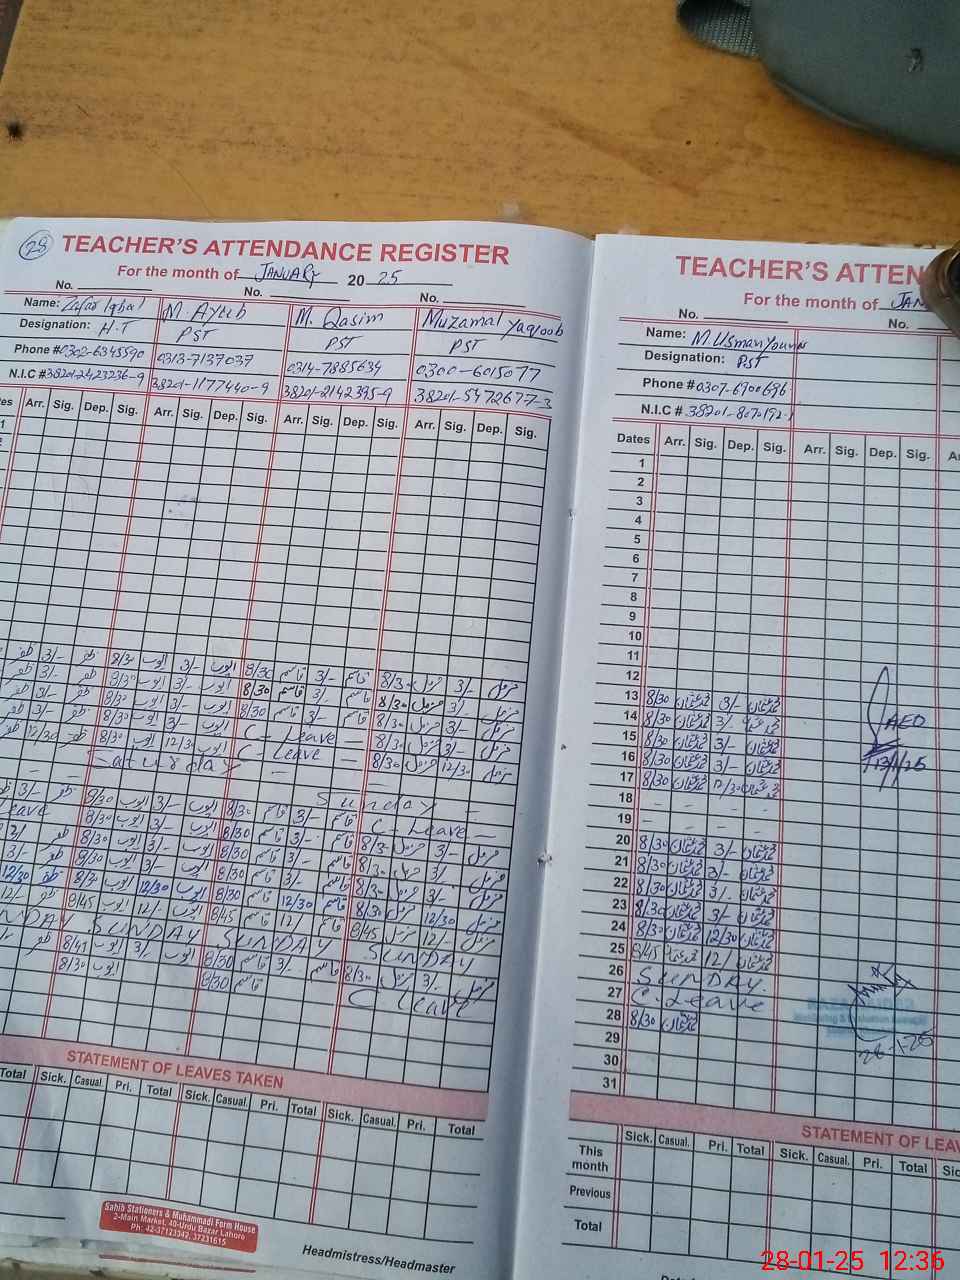 28
TEACHER'S ATTENDANCE REGISTER
For the month of JANUARY 2025
No. No. No.
Name: Zafar Iqbal M. Ayub M. Qasim Muzamal Yaqoob
Designation: H.T PST PST PST
Phone # 0302-6345590 0313-7137037 0314-7885634 0300-6015077
N.I.C # 38201-2423236-9 38201-1177440-9 38201-2142395-9 38201-5472677-3
Arr. Sig. Dep. Sig. Arr. Sig. Dep. Sig. Arr. Sig. Dep. Sig. Arr. Sig. Dep. Sig.
3/- ظفر 8/30 ایوب 3/- ایوب 8/30 قاسم 3/- قاسم 8/30 مزمل 3/- مزمل
3/- ظفر 8/30 ایوب 3/- ایوب 8/30 قاسم 3/- قاسم 8/30 مزمل 3/- مزمل
3/- ظفر 8/30 ایوب 3/- ایوب 8/30 قاسم 3/- قاسم 8/30 مزمل 3/- مزمل
3/- ظفر 8/30 ایوب 3/- ایوب C - Leave - 8/30 مزمل 3/- مزمل
12/30 ظفر 8/30 ایوب 12/30 ایوب C - Leave - 8/30 مزمل 12/30 مزمل
Saturday
Sunday
3/- ظفر 8/30 ایوب 3/- ایوب 8/30 قاسم 3/- قاسم C - Leave -
eave 8/30 ایوب 3/- ایوب 8/30 قاسم 3/- قاسم 8/30 مزمل 3/- مزمل
3/- 8/30 ایوب 3/- ایوب 8/30 قاسم 3/- قاسم 8/30 مزمل 3/- مزمل
3/- ظفر 8/30 ایوب 3/- ایوب 8/30 قاسم 3/- قاسم 8/30 مزمل 3/- مزمل
12/30 ظفر 8/30 ایوب 12/30 ایوب 8/30 قاسم 12/30 قاسم 8/30 مزمل 12/30 مزمل
12/- ظفر 8/45 ایوب 12/- ایوب 8/45 قاسم 12/- قاسم 8/45 مزمل 12/- مزمل
NDAY SUNDAY SUNDAY SUNDAY
ظفر 8/41 ایوب 3/- ایوب 8/30 قاسم 3/- قاسم 8/30 مزمل 3/- مزمل
8/30 ایوب 8/30 قاسم C - Leave
STATEMENT OF LEAVES TAKEN
Total Sick. Casual. Pri. Total Sick. Casual. Pri. Total Sick. Casual. Pri. Total
Sahib Stationers & Muhammadi Form House
2-Main Market, 40-Urdu Bazar Lahore
Ph: 42-37123342, 37231615
Headmistress/Headmaster
TEACHER'S ATTEN
For the month of JAN
No. No.
Name: M. Usman Younis
Designation: PST
Phone # 0307-6900696
N.I.C # 38201-8070192-1
Dates Arr. Sig. Dep. Sig. Arr. Sig. Dep. Sig.
1
2
3
4
5
6
7
8
9
10
11
12
13 8/30 محمد عثمان 3/- محمد عثمان
14 8/30 محمد عثمان 3/- محمد عثمان AEO
15 8/30 محمد عثمان 3/- محمد عثمان
16 8/30 محمد عثمان 3/- محمد عثمان
17 8/30 محمد عثمان 12/30 محمد عثمان
18 - - - -
19 - - - -
20 8/30 محمد عثمان 3/- محمد عثمان
21 8/30 محمد عثمان 3/- محمد عثمان
22 8/30 محمد عثمان 3/- محمد عثمان
23 8/30 محمد عثمان 3/- محمد عثمان
24 8/30 محمد عثمان 12/30 محمد عثمان
25 8/45 محمد عثمان 12/- محمد عثمان
26 SUNDAY.
27 C - Leave
28 8/30 محمد عثمان
29
30
31
STATEMENT OF LEAV
Sick. Casual. Pri. Total Sick. Casual. Pri. Total Sic
This month
Previous
Total
28-01-25 12:36